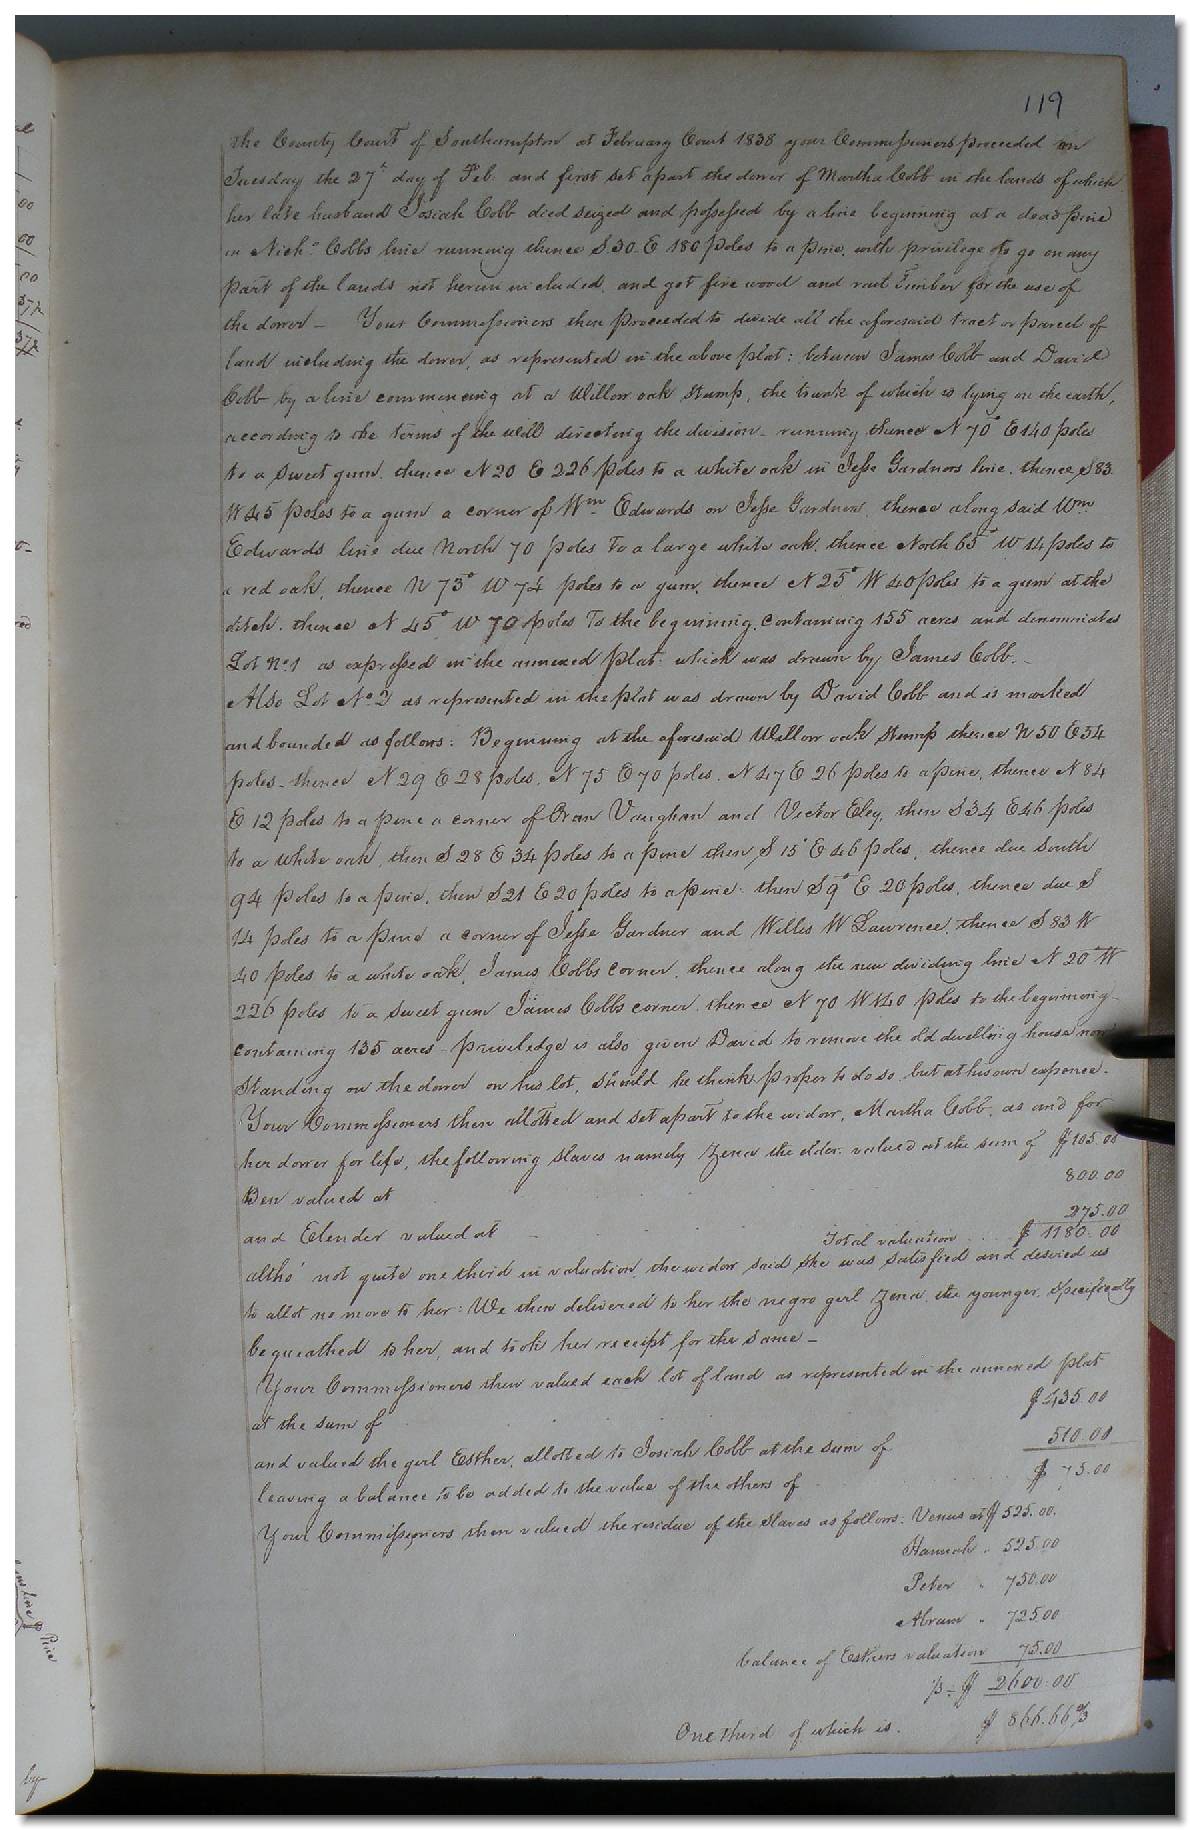 119
the County Court of Southampton at February Court 1838 your Commissioners proceeded on
Tuesday the 27th day of Feb. and first set apart the dower of Martha Cobb in the lands of which
her late husband Josiah Cobb died seized and possessed by a line beginning at a dead pine
in Nichs Cobbs line running thence S 30 E 180 poles to a pine, with privilege to go on any
part of the lands not herein included, and get fire wood and rail timber for the use of
the dower – Your Commissioners then proceeded to divide all the aforesaid tract or parcel of
land including the dower, as represented in the above plat: between James Cobb and David
Cobb by a line commencing at a Willow oak stump, the trunk of which is lying on the earth,
according to the terms of the will directing the division – running thence N 70° E 140 poles
to a sweet gum, thence N 20 E 226 poles to a white oak in Jesse Gardners line, thence S 83
W 45 poles to a gum a corner of Wm Edwards on Jesse Gardner, thence along said Wm
Edwards line due North 70 poles to a large white oak, thence North 65° W 14 poles to
a red oak, thence N 73° W 74 poles to a gum, thence N 25° W 40 poles to a gum at the
ditch, thence N 45° W 70 poles to the beginning, containing 155 acres and denominated
Lot No 1 as expressed in the annexed plat: which was drawn by James Cobb. –
Also Lot No 2 as represented in the plat was drawn by David Cobb and is marked
and bounded as follows: Beginning at the aforesaid Willow oak stump thence N 50 E 34
poles – thence N 29 E 28 poles, N 75 E 70 poles, N 47 E 26 poles to a pine, thence N 84
E 12 poles to a pine a corner of Oran Vaughan and Victor Eley, then S 34 E 46 poles
to a white oak, then S 28 E 34 poles to a pine then S 15° E 46 poles, thence due South
94 poles to a pine, then S 21 E 20 poles to a pine: then S 9° E 20 poles, thence due S
14 poles to a pine a corner of Jesse Gardner and Willis W Lawrence, thence S 83 W
40 poles to a white oak, James Cobbs corner, thence along the new dividing line N 20° W
226 poles to a sweet gum James Cobbs corner, thence N 70 W 140 poles to the beginning –
containing 135 acres – priviledge is also given David to remove the old dwelling house now
standing on the dower on his lot, should he think proper to do so, but at his own expence. –
Your Commissioners then allotted and set apart to the widow, Martha Cobb, as and for
her dower for life, the following slaves namely Zena the elder, valued at the sum of $105.00
Ben valued at 800.00
and Elender valued at – 275.00
Total valuation .... $1180.00
altho' not quite one third in valuation, the widow said she was satisfied and desired us
to allot no more to her: We then delivered to her the negro girl Zena, the younger, specifically
bequeathed to her, and took her receipt for the same –
Your Commissioners then valued each lot of land as represented in the annexed plat
at the sum of $435.00
and valued the girl Esther, allotted to Josiah Cobb at the sum of 510.00
leaving a balance to be added to the value of the others of $75.00
Your Commissioners then valued the residue of the slaves as follows: Venus at $525.00.
Hannah " 525.00
Peter " 750.00
Abram " 725.00
balance of Esthers valuation 75.00
/3 ÷ $ 2600.00
One third of which is. $ 866.66 2/3